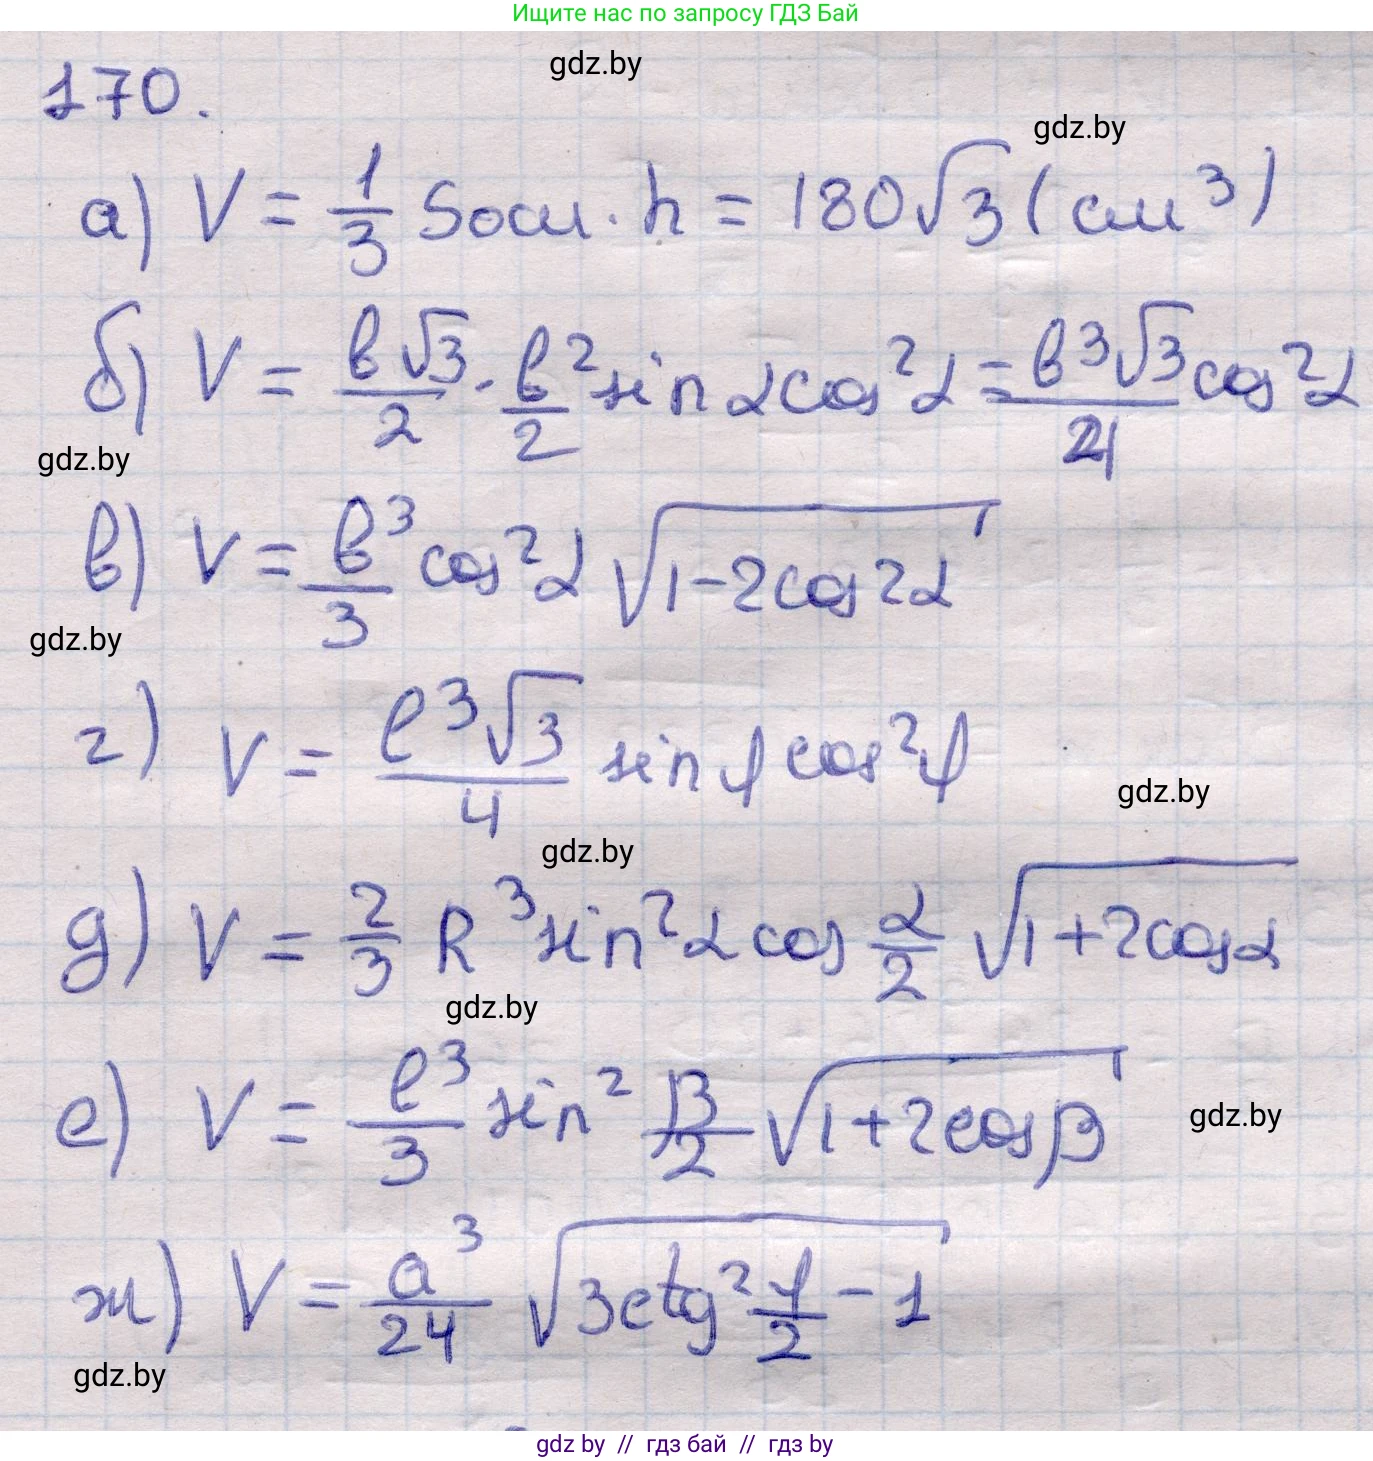 Ищите нас по запросу ГДЗ Бай
gdz.by
170.
gdz.by
а) V = 1/3 Sосн · h = 180√3 (см³)
б) V = в√3/2 · в²/2 sin α cos² α = в³√3/4 cos² α
gdz.by
в) V = в³/3 cos² α √(1-2cos 2α)
gdz.by
г) V = ℓ³√3/4 sin φ cos² φ
gdz.by
gdz.by
д) V = 2/3 R³ sin² α cos α/2 √(1+2cos α)
gdz.by
е) V = ℓ³/3 sin² β/2 √(1+2cos β)
gdz.by
ж) V = a³/24 √(3ctg² φ/2 - 1)
gdz.by
gdz by // гдз бай // гдз by